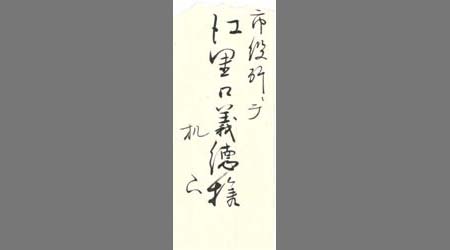 市役所ニテ
江里口義徳様
机下